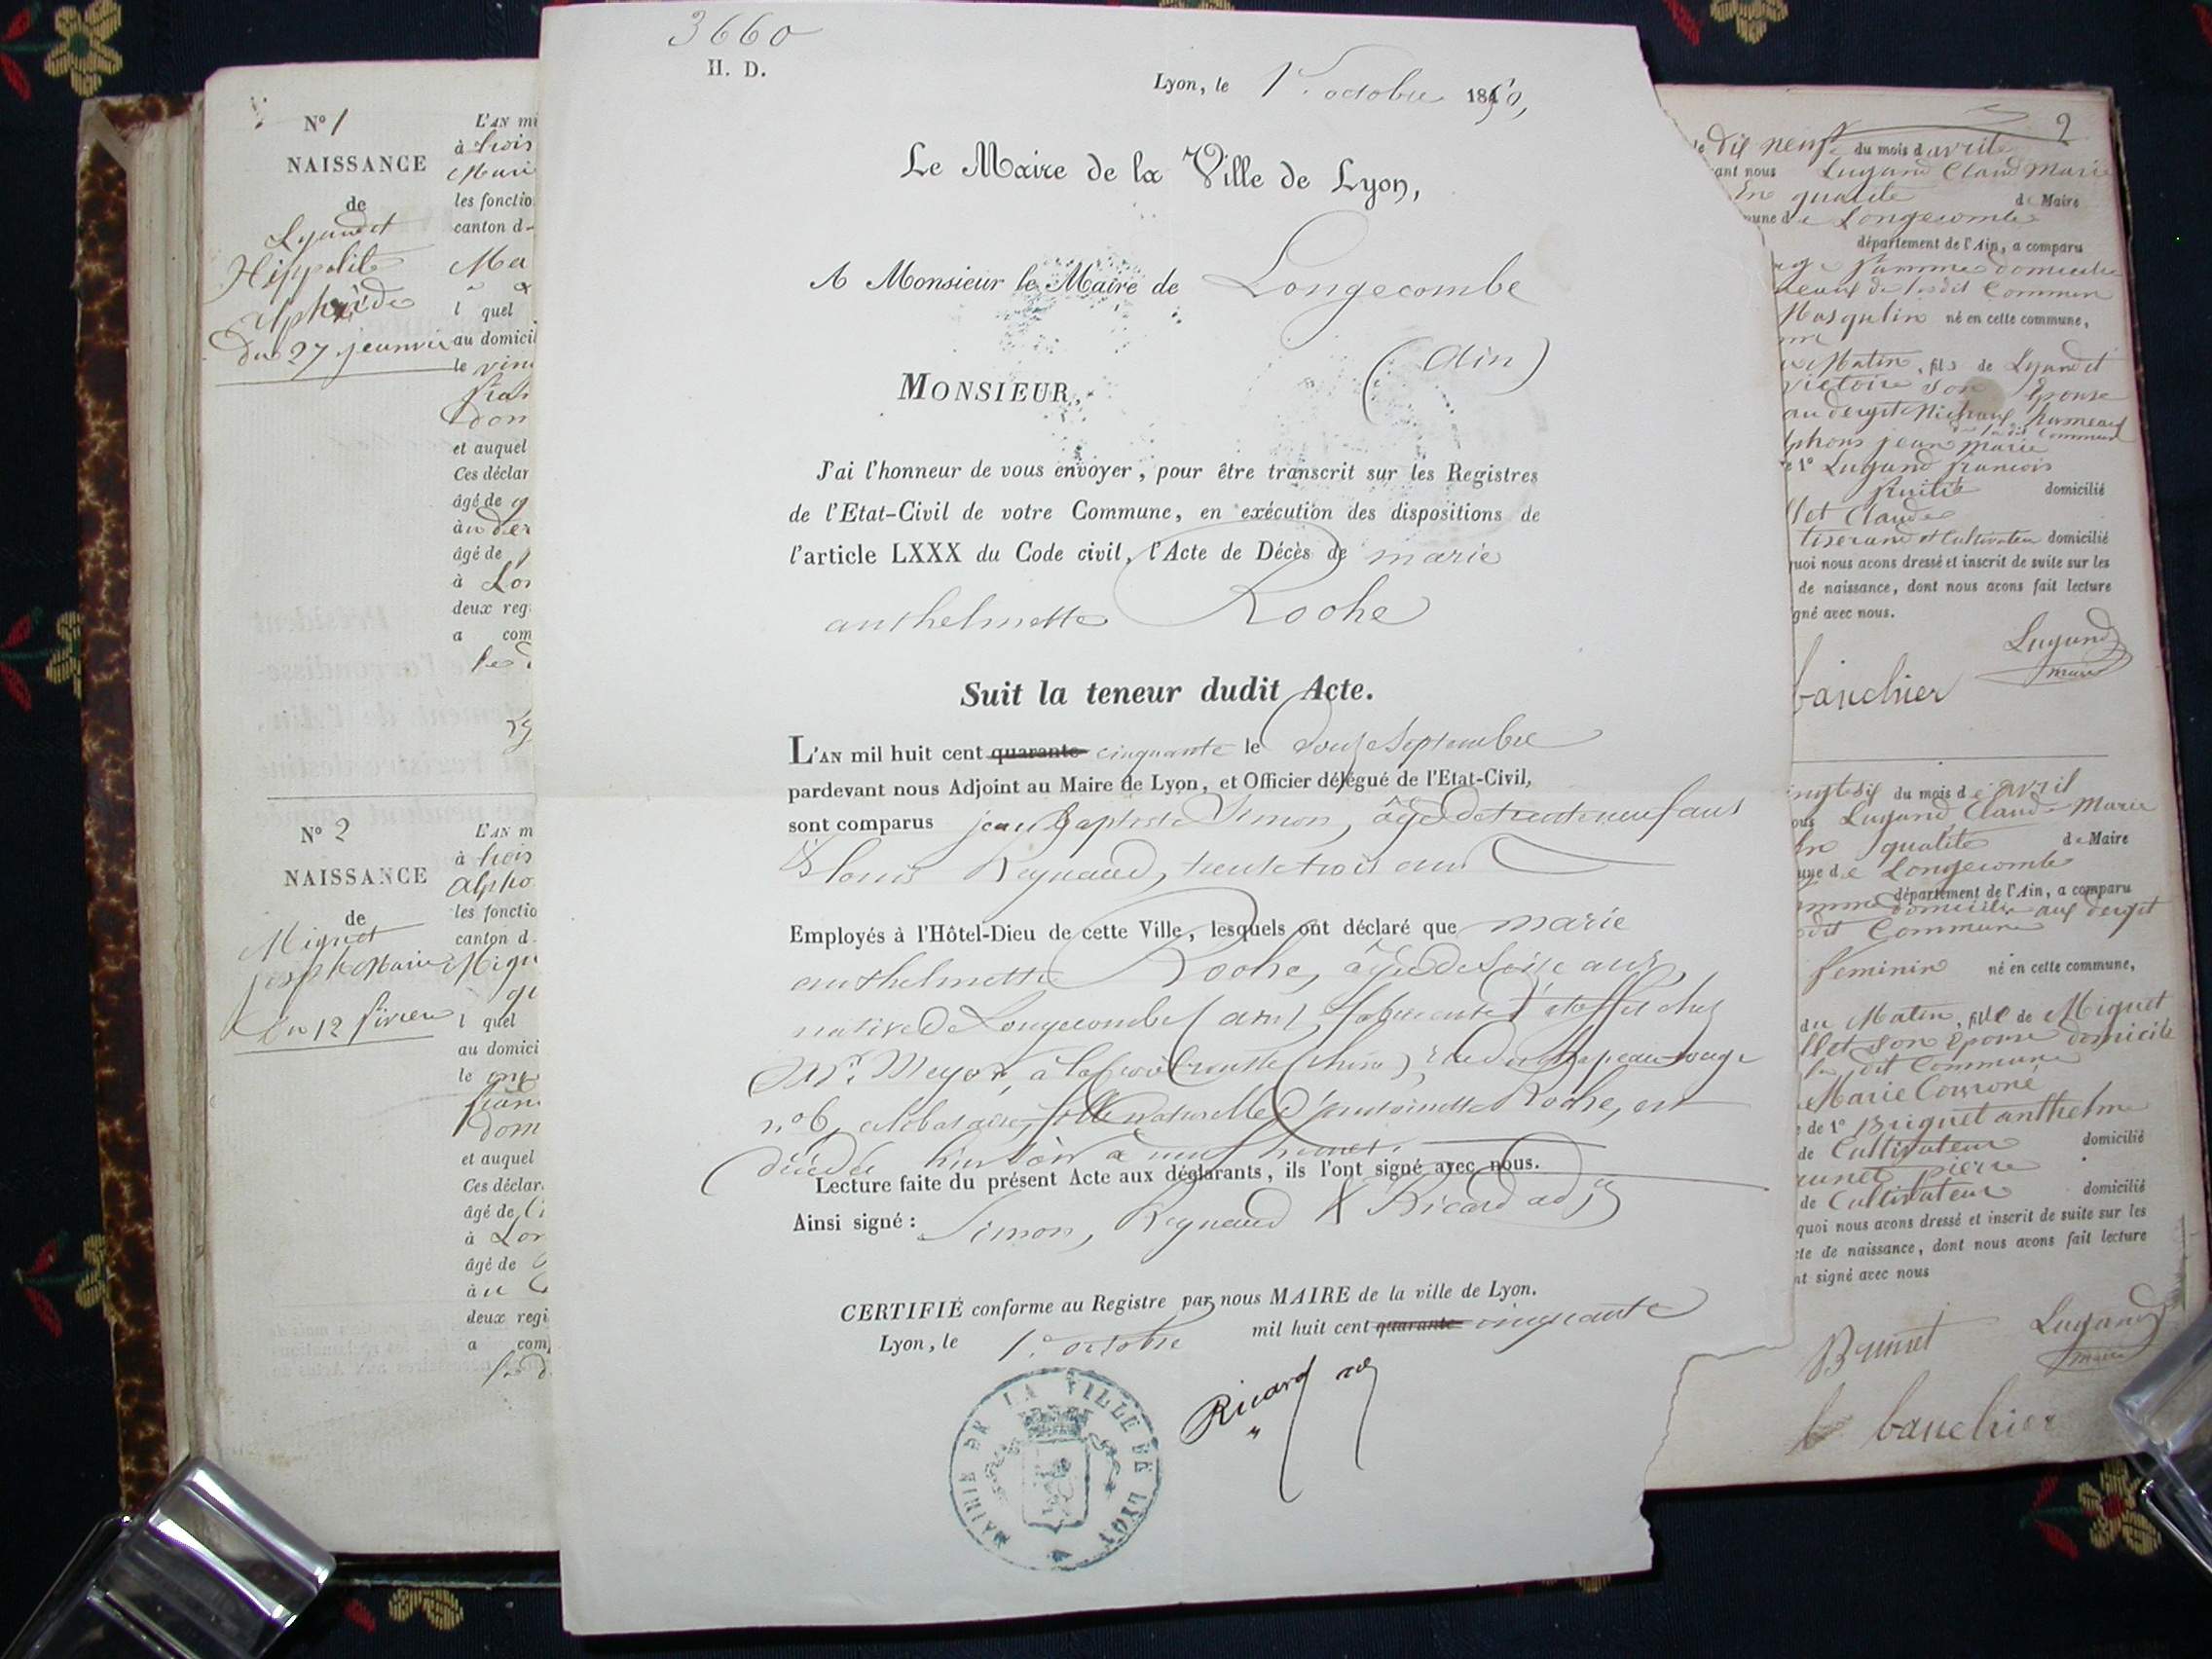 3660
H. D.
Lyon, le 1er octobre 1850,
Le Maire de la Ville de Lyon,
A Monsieur le Maire de Longecombe
(Ain)
MONSIEUR,
J'ai l'honneur de vous envoyer, pour être transcrit sur les Registres
de l'Etat-Civil de votre Commune, en exécution des dispositions de
l'article LXXX du Code civil, l'Acte de Décès de marie
anthelmette Roche
Suit la teneur dudit Acte.
L'AN mil huit cent quarante cinquante le douze Septembre
pardevant nous Adjoint au Maire de Lyon, et Officier délégué de l'Etat-Civil,
sont comparus jean Baptiste Simon, âgé de trente neuf ans
& louis Reynaud, trente trois ans
Employés à l'Hôtel-Dieu de cette Ville, lesquels ont déclaré que marie
anthelmette Roche, âgée de seize ans,
native de Longecombe (ain), fabricante d'étoffes chez
Mr. Meyer, à la Croix rousse (rhône), rue du chapeau rouge
n° 6, célibataire, fille naturelle d'antoinette Roche, est
décédée hier soir à neuf heures.
Lecture faite du présent Acte aux déclarants, ils l'ont signé avec nous.
Ainsi signé : Simon, Reynaud & Ricard adj
CERTIFIÉ conforme au Registre par nous MAIRE de la ville de Lyon.
Lyon, le 1er octobre mil huit cent quarante cinquante
Ricard adj
MAIRIE DE LA VILLE DE LYON
N° 1
NAISSANCE
de
Lyaudet
Hippolite
Du 27 jeanvier
L'AN mi
à trois
Mari
les fonctio
canton d
Ma
l quel
au domici
le vin
dom
et auquel
Ces déclar
âgé de
au der
âgé de
à Lon
deux reg
a com
N° 2
NAISSANCE
de
Miguet
joseph Marie
Du 12 fivrier
L'AN m
à trois
alpho
les fonctio
canton d
Migu
l quel
au domici
le
dom
et auquel
Ces déclar
âgé de
à Lon
âgé de
au
deux regi
a com
2
le dix neuf du mois d avril
ant nous Lugand Claud Marie
En qualité de Maire
mune de Longecombe
département de l'Ain, a comparu
Masqulin né en cette commune,
Matin, fils de Lyaudet
victoire son Epouse
phons jean marie
1° Lugand francois
domicilié
llet Claude
tiserand et Cultivateur domicilié
quoi nous avons dressé et inscrit de suite sur les
de naissance, dont nous avons fait lecture
gné avec nous.
Lugand
maire
bauchier
ingtsix du mois d avril
ous Lugand Claud Marie
En qualité de Maire
une de Longecombe
département de l'Ain, a comparu
domicilie aux dergit
dit Commune
feminin né en cette commune,
du Matin, fille de Miguet
llet son Epouse domicilié
dit Commune
Marie Couroné
de 1° Briguet anthelme
de Cultivateur domicilié
runet pierre
de Cultivateur domicilié
quoi nous avons dressé et inscrit de suite sur les
cte de naissance, dont nous avons fait lecture
nt signé avec nous
Brunet
Lugand
maire
bauchier